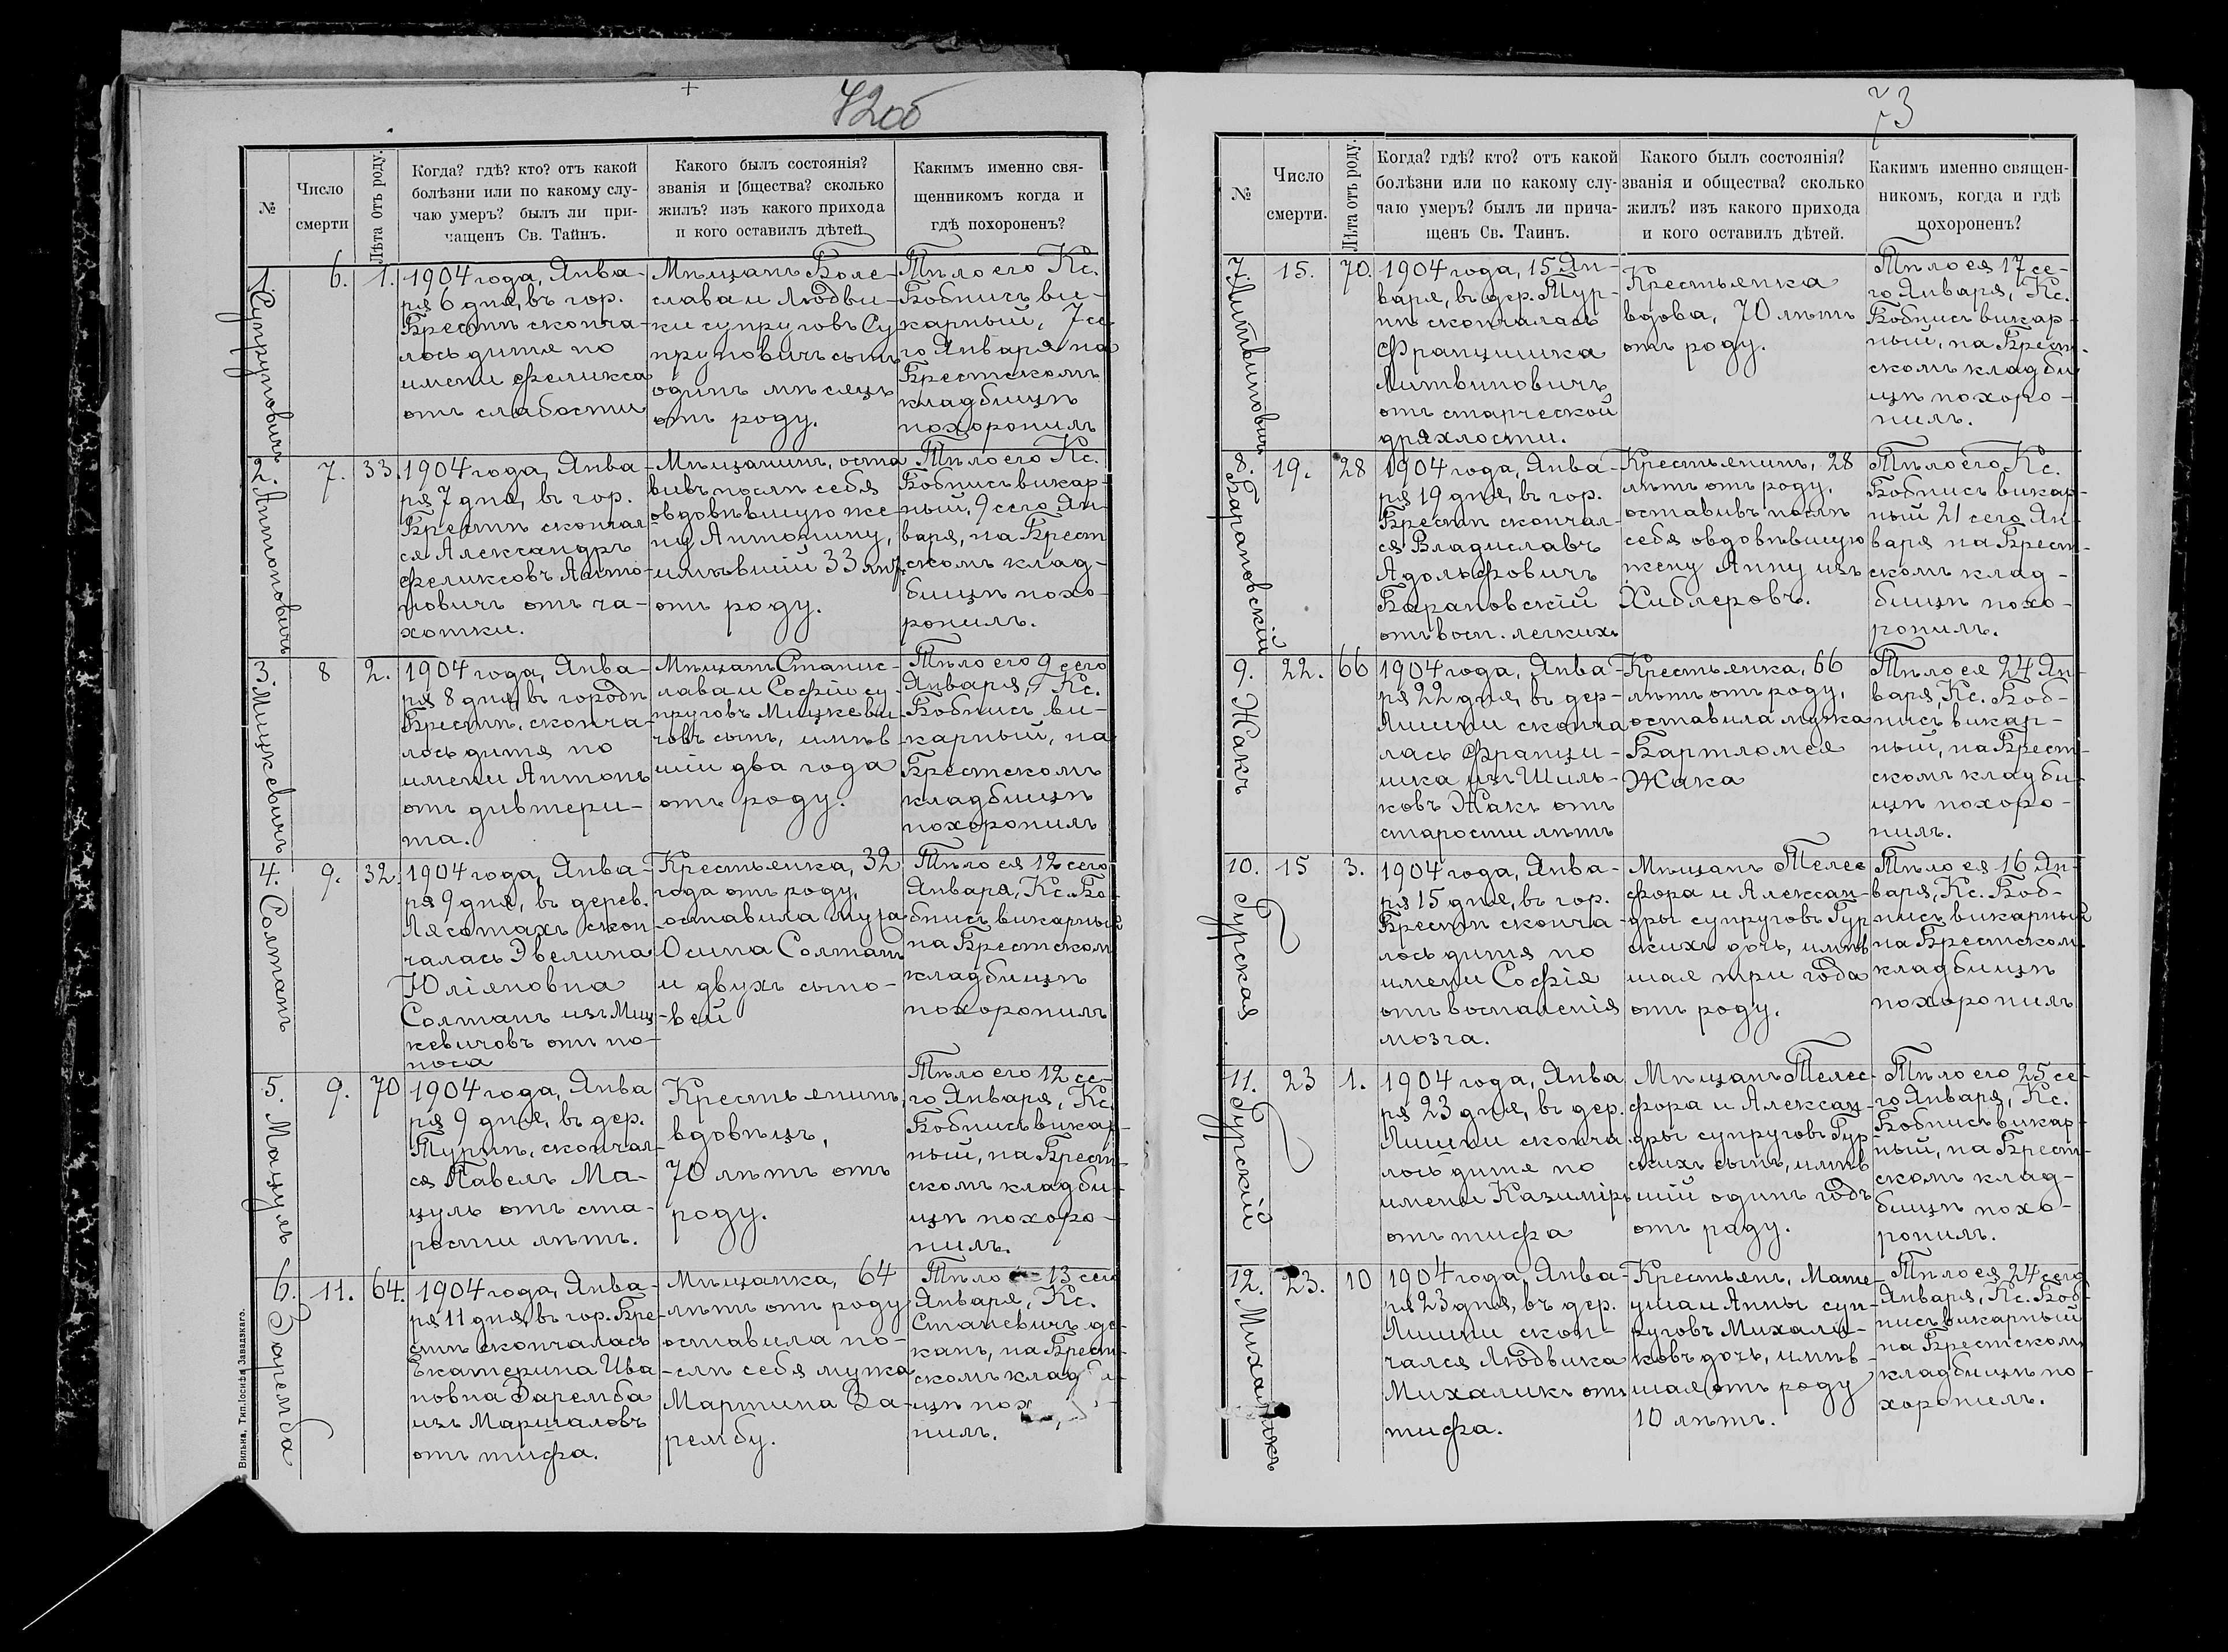 72об
№
Число
смерти
Лѣта отъ роду.
Когда? гдѣ? кто? отъ какой
болѣзни или по какому слу-
чаю умеръ? былъ ли при-
чащенъ Св. Тайнъ.
Какого былъ состоянія?
званія и общества? сколько
жилъ? изъ какого прихода
и кого оставилъ дѣтей
Какимъ именно свя-
щенникомъ когда и
гдѣ похороненъ?
1
Супруновичъ
6.
1.
1904 года, Янва-
ря 6 дня, въ гор.
Брестѣ сконча-
лось дитя по
имени Феликса
отъ слабости
Мѣщанъ Боле-
слава и Людви-
ки супруговъ Су
пруновичъ сынъ
одинъ мѣсяцъ
отъ роду.
Тѣло его Кс.
Бобнисъ ви-
карный, 7 се
го Января на
Брестскомъ
кладбищѣ
похоронилъ
2.
Антоновичъ
7.
33.
1904 года, Янва-
ря 7 дня, въ гор.
Брестѣ скончал
ся Александръ
Феликсовъ Анто-
новичъ отъ ча-
хотки.
Мѣщанинъ, оста
вивъ послѣ себя
овдовѣвшую же-
ну Антонину,
имѣвшій 33 лѣт.
отъ роду.
Тѣло его Кс.
Бобнисъ викар-
ный, 9 сего Ян-
варя, на Брест
скомъ клад-
бищѣ похо-
ронилъ.
3.
Мицкевичъ
8
2.
1904 года, Янва-
ря 8 дня, въ городѣ
Брестѣ, сконча
лось дитя по
имени Антонъ
отъ дифтери-
та.
Мѣщанъ Станис-
лава и Софіи су-
пруговъ Мицкеви
човъ сынъ, имѣв
шій два года
отъ роду.
Тѣло его 9 сего
Января, Кс.
Бобнисъ ви-
карный, на
Брестскомъ
кладбищѣ
похоронилъ
4.
Солтанъ
9.
32.
1904 года, Янва-
ря 9 дня, въ дерев.
Лясотахъ скон
чалась Эвелина
Юліяновна
Солтанъ изъ Миц
кевичовъ отъ по-
носа
Крестьянка, 32
года отъ роду,
оставила мужа
Осипа Солтанъ
и двухъ сыно-
вей
Тѣло ея 12 сего
Января, Кс. Бо-
бнисъ викарный
на Брестскомъ
кладбищѣ
похоронилъ
5.
Мацуль
9.
70
1904 года, Янва
ря 9 дня, въ дер.
Турнѣ, скончал-
ся Павелъ Ма-
цуль отъ ста-
рости лѣтъ.
Крестьянинъ,
вдовѣцъ,
70 лѣтъ отъ
роду.
Тѣло его 12 се-
го Января, Кс.
Бобнисъ викар-
ный, на Брест-
скомъ кладби-
щѣ похоро-
нилъ.
6.
Заремба
11.
64.
1904 года, Янва-
ря 11 дня, въ гор. Бре-
стѣ скончалась
Екатерина Ива
новна Заремба
изъ Маршаловъ
отъ тифа.
Мѣщанка, 64
лѣтъ отъ роду
оставила по-
слѣ себя мужа
Мартина За-
рембу.
Тѣло 13 сего
Января, Кс.
Станевичъ де-
канъ, на Брест-
скомъ клад
щѣ пох
нилъ.
Вильна, Тип. Іосифа Завадзкаго.
73
№
Число
смерти.
Лѣта отъ роду.
Когда? гдѣ? кто? отъ какой
болѣзни или по какому слу-
чаю умеръ? былъ ли прича-
щенъ Св. Таинъ.
Какого былъ состоянія?
званія и общества? сколько
жилъ? изъ какого прихода
и кого оставилъ дѣтей.
Какимъ именно священ-
никомъ, когда и гдѣ
похороненъ?
7.
Литвиновичъ
15.
70.
1904 года, 15 Ян-
варя, въ дер. Тур-
нѣ скончалась
Францишка
Литвиновичъ
отъ старческой
дряхлости.
Крестьянка
вдова, 70 лѣтъ
отъ роду.
Тѣло ея 17 се-
го Января, Кс.
Бобнисъ викар-
ный, на Брест-
скомъ кладби
щѣ похоро-
нилъ.
8.
Барановскій
19.
28
1904 года, Янва-
ря 19 дня, въ гор.
Брестѣ скончал-
ся Владиславъ
Адольфовичъ
Барановскій
отъ восп. легкихъ
Крестьянинъ, 28
лѣтъ отъ роду,
оставивъ послѣ
себя овдовѣвшую
жену Анну изъ
Хиблеровъ.
Тѣло его, Кс.
Бобнисъ викар-
ный 21 сего Ян-
варя на Брест-
скомъ клад-
бищѣ похо-
ронилъ.
9.
Жакъ
22.
66
1904 года, Янва-
ря 22 дня, въ дер-
Лишни сконча
лась Франци-
шка изъ Шиль-
ковъ Жакъ отъ
старости лѣтъ
Крестьянка, 66
лѣтъ отъ роду,
оставила мужа
Бартломея
Жака
Тѣло ея 24 Ян-
варя, Кс. Боб-
нисъ викар-
ный, на Брест-
скомъ кладби-
щѣ похоро-
нилъ.
10.
Гурская
15
3.
1904 года, Янва-
ря 15 дня, въ гор.
Брестѣ сконча-
лось дитя по
имени Софія
отъ воспаленія
мозга.
Мѣщанъ Телес
фора и Алексан-
дры супруговъ Гур
скихъ дочь, имѣв
шая три года
отъ роду.
Тѣло ея 16 Ян-
варя, Кс. Боб-
нисъ викарный
на Брестском.
кладбищѣ
похоронилъ
11.
Гурскій
23
1.
1904 года, Янва
ря 23 дня, въ дер.
Лишни сконча
лось дитя по
имени Казиміръ
отъ тифа
Мѣщанъ Телес-
фора и Алексан-
дры супруговъ Гур
скихъ сынъ, имѣв
шій одинъ годъ
отъ роду.
Тѣло его 25 се-
го Января, Кс.
Бобнисъ викар
ный, на Брест-
скомъ клад-
бищѣ похо-
ронилъ.
12.
Михаликъ
23.
10
1904 года, Янва-
ря 23 дня, въ дер.
Лишни скон-
чался Людвика
Михаликъ отъ
тифа.
Крестьянъ, Мате
уша и Анны суп-
руговъ Михали-
ковъ дочь, имѣв-
шая отъ роду
10 лѣтъ.
Тѣло ея 24 сего
Января, Кс. Боб
нисъ викарный
на Брестскомъ
кладбищѣ по-
хоронилъ.